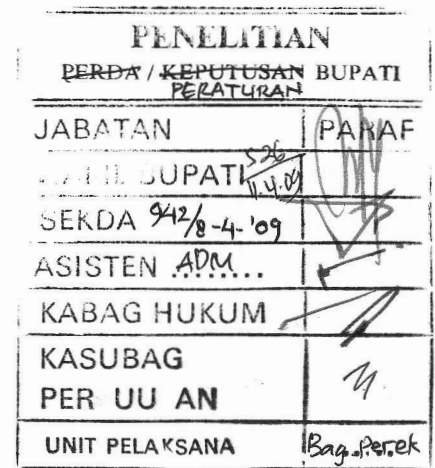 PENELITIAN
PERDA / KEPUTUSAN BUPATI
PERATURAN
JABATAN PARAF
BUPATI 526/11.4.09
SEKDA 942/8-4-'09
ASISTEN ADM......
KABAG HUKUM
KASUBAG
PER UU AN
UNIT PELAKSANA Bag. Perek